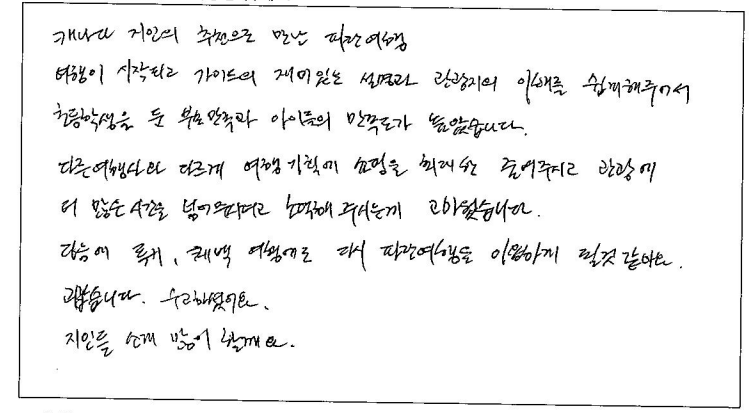 캐나다 지인의 추천으로 만난 파란여행
여행이 시작되고 가이드의 재미있는 설명과 관광지의 이해를 쉽게해주어서
초등학생을 둔 부모만족과 아이들의 만족도가 높았습니다.
다른여행사와 다르게 여행기획에 쇼핑을 최대한 줄여주시고 관광에
더 많은 시간을 넣어주시려고 노력해 주시는게 고마웠습니다.
다음에 록키, 퀘백 여행에도 다시 파란여행을 이용하게 될것 같아요.
고맙습니다. 수고하셨어요.
지인들 소개 많이 할께요.